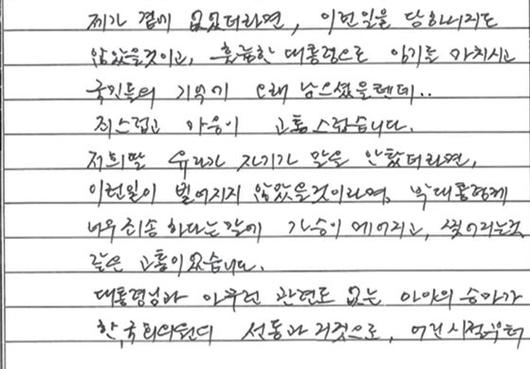 제가 곁에 없었더라면, 이런일을 당하시지도
않았을것이고, 훌륭한 대통령으로 임기를 마치시고
국민들의 기억에 오래 남으셨을텐데..
죄스럽고 마음이 고통스럽습니다.
저희딸 유라가 자기가 말을 안탔더라면,
이런일이 벌어지지 않았을것이라며, 박대통령께
너무죄송하다는말에 가슴이 메어지고, 찢어지는것
같은 고통이었습니다.
대통령님과 아무런 관련도 없는 아이의 승마가
한 국회의원의 선동과 거짓으로, 어린시절부터